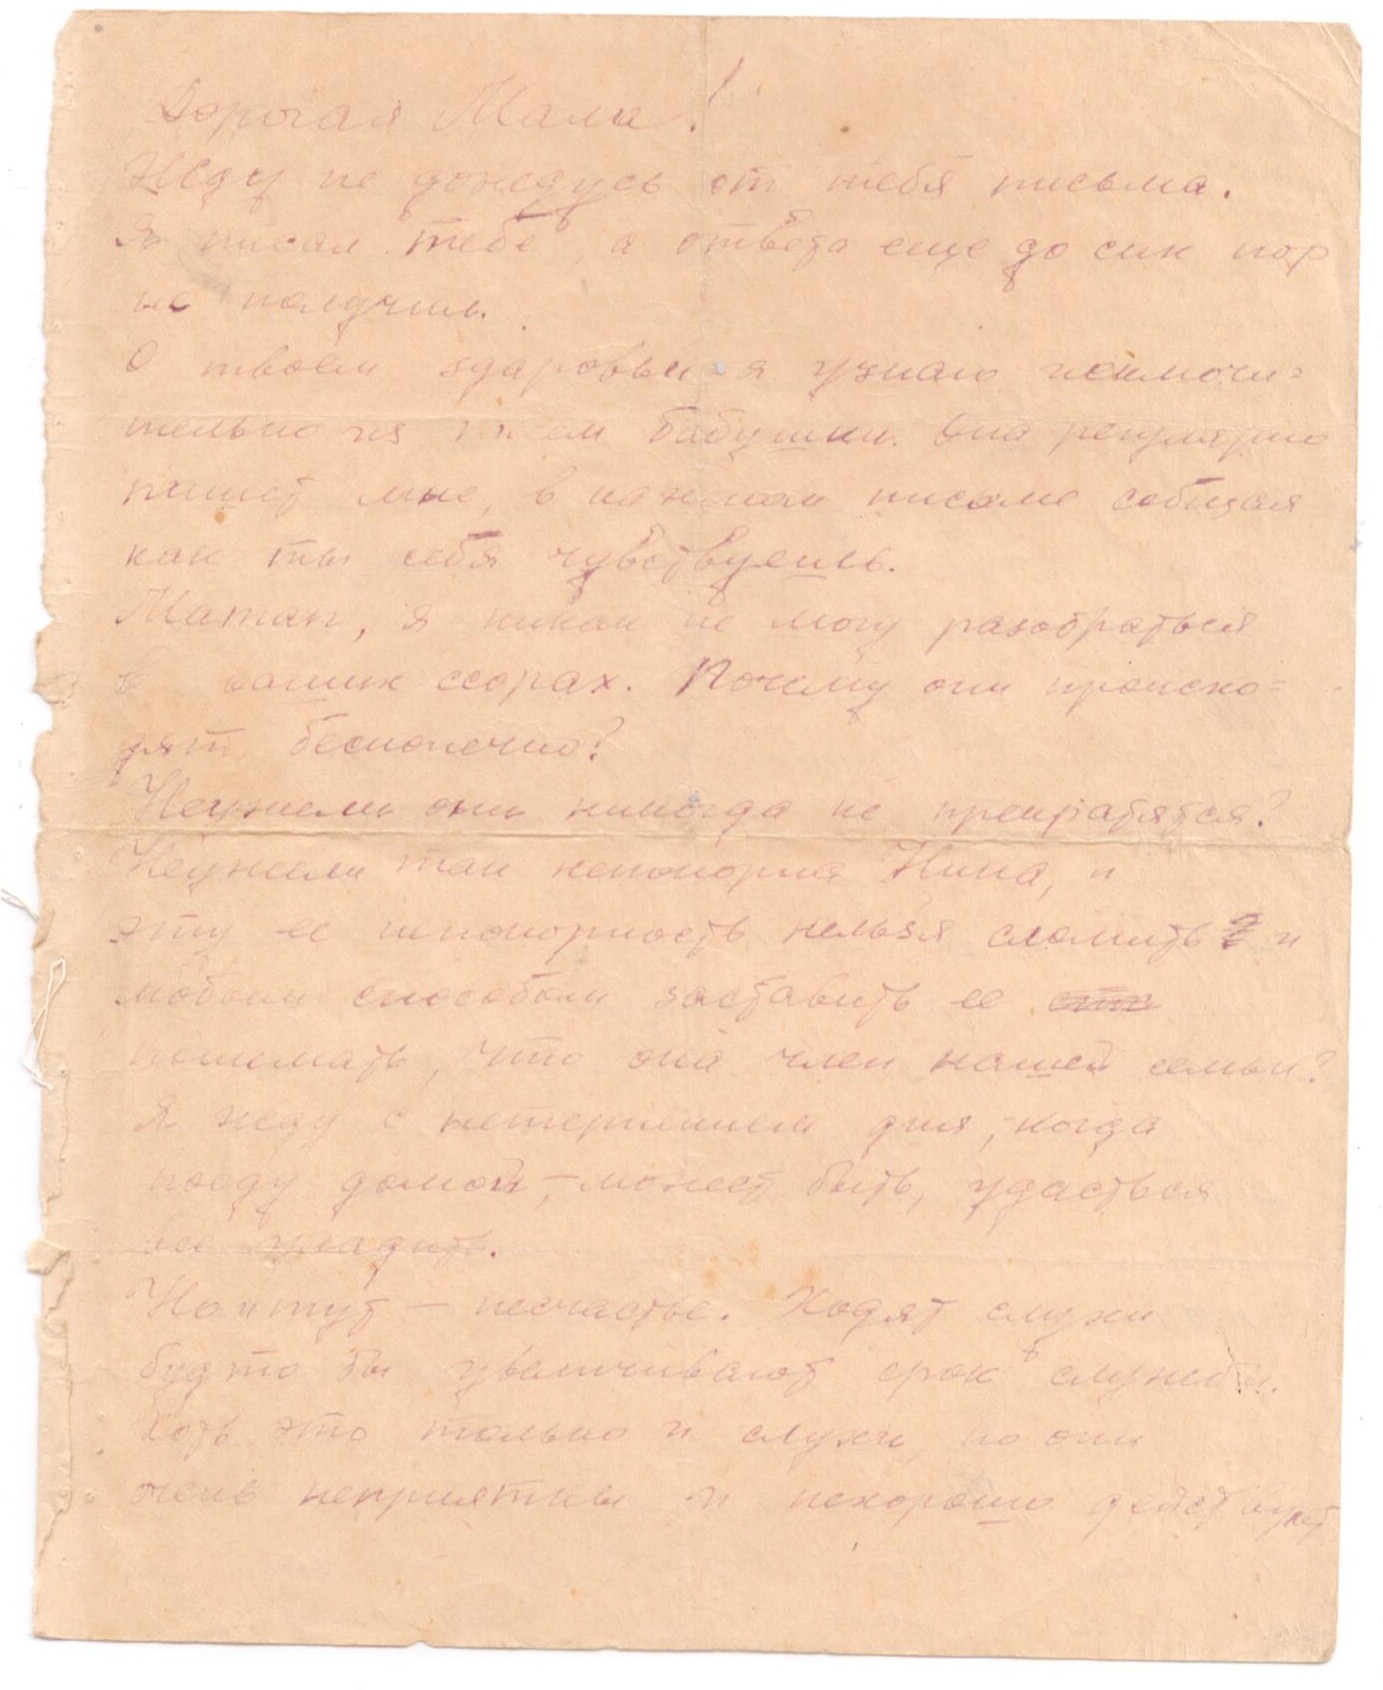 Дорогая Мама!
Жду не дождусь от тебя письма.
Я писал тебе, а ответа еще до сих пор
не получил.
О твоем здоровьи я узнаю исключи=
тельно из писем бабушки. Она регулярно
пишет мне, в каждом письме сообщая
как ты себя чувствуешь.
Маман, я никак не могу разобраться
в ваших ссорах. Почему они происхо=
дят бесконечно?
Неужели они никогда не прекратятся?
Неужели так непокорна Нина, и
эту ее непокорность нельзя сломить и
любым способом заставить ее
понимать, что она член нашей семьи?
Я жду с нетерпением дня, когда
поеду домой, – может быть, удасться
все уладить.
Но и тут – несчастье. Ходят слухи
будто бы увеличивают срок службы.
Хоть это только и слухи, но они
очень неприятны и нехорошо действуют